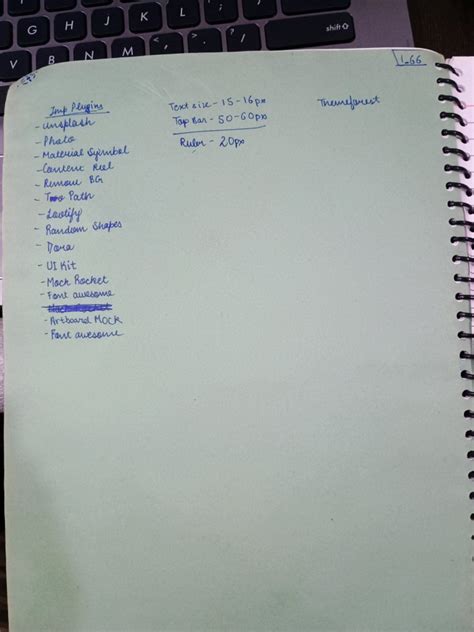 1.66
Imp Plugins
- Unsplash
- Photo
- Material Symbol
- Content Reel
- Remove BG
- Path
- Lootify
- Random Shapes
- Dora
- UI Kit
- Mock Rocket
- Font awesome
- Artboard Mock
- Font awesome
Text size - 15-16px
Top Bar - 50-60px
Ruler - 20px
Themeforest
shift
V
B
N
M